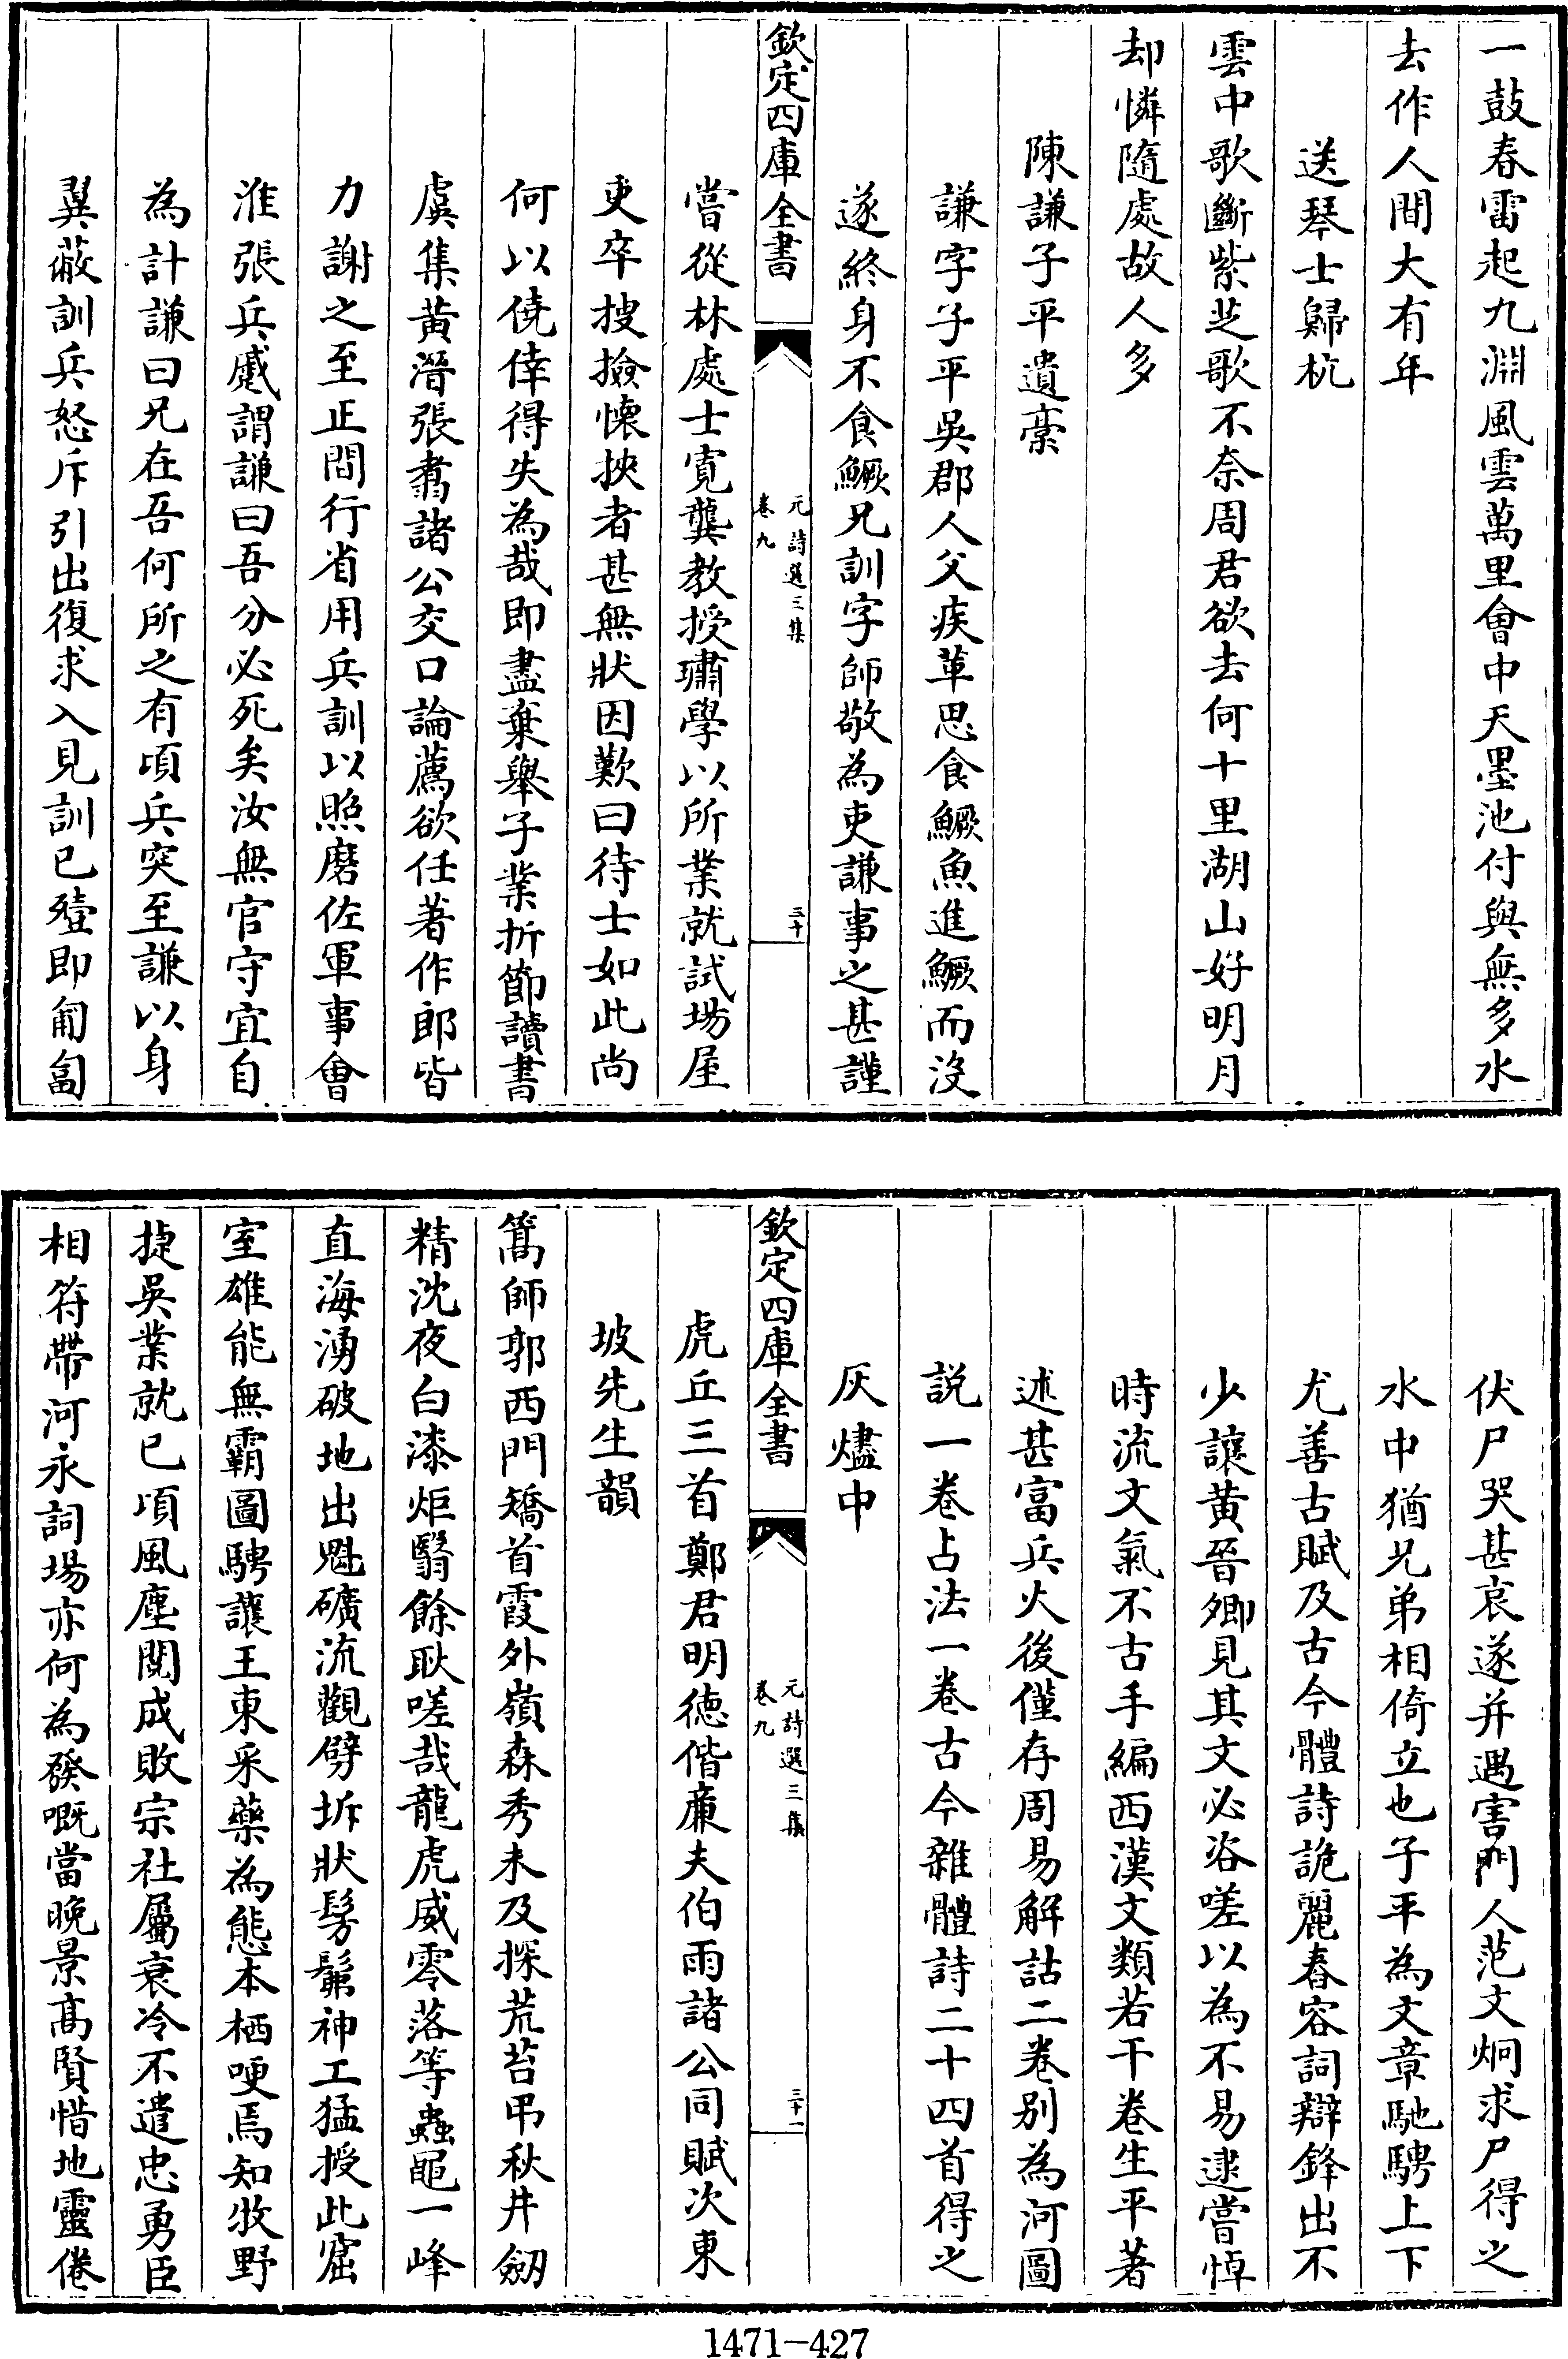 一鼓春雷起九淵風雲萬里會中天墨池付與無多水
去作人間大有年
送琴士歸杭
雲中歌斷紫芝歌不奈周君欲去何十里湖山好明月
却憐隨處故人多
陳謙子平遺稾
謙字子平吳郡人父疾革思食鱖魚進鱖而沒
遂終身不食鱖兄訓字師敬為吏謙事之甚謹
欽定四庫全書
元詩選三集
卷九
三十
嘗從林處士寛龔教授璛學以所業就試塲屋
吏卒搜撿懐挾者甚無狀因歎曰待士如此尚
何以僥倖得失為哉即盡棄舉子業折節讀書
虞集黃溍張翥諸公交口論薦欲任著作郎皆
力謝之至正間行省用兵訓以照磨佐軍事會
淮張兵蹙謂謙曰吾分必死矣汝無官守宜自
為計謙曰兄在吾何所之有頃兵突至謙以身
翼蔽訓兵怒斥引出復求入見訓已殪即匍匐
伏尸哭甚哀遂并遇害門人范文炯求尸得之
水中猶兄弟相倚立也子平為文章馳騁上下
尤善古賦及古今體詩詭麗舂容詞辯鋒出不
少讓黃晉卿見其文必咨嗟以為不易逮嘗悼
時流文氣不古手編西漢文類若干卷生平著
述甚富兵火後僅存周易解詁二卷别為河圖
説一卷占法一卷古今雜體詩二十四首得之
灰燼中
欽定四庫全書
元詩選三集
卷九
三十一
虎丘三首鄭君明徳偕亷夫伯雨諸公同賦次東
坡先生韻
篙師郭西門矯首霞外嶺森秀未及探荒苔弔秋井劔
精沈夜白漆炬翳餘耿嗟哉龍虎威零落等蟲黽一峰
直海湧破地出魁礦流觀劈坼狀髣髴神工猛授此窟
室雄能無霸圖騁讓王東采藥為態本栖哽焉知牧野
捷吳業就已頃風塵閲成敗宗社屬衰冷不遣忠勇臣
相符帶河永詞場亦何為發嘅當晚景髙賢惜地靈倦
1471-427